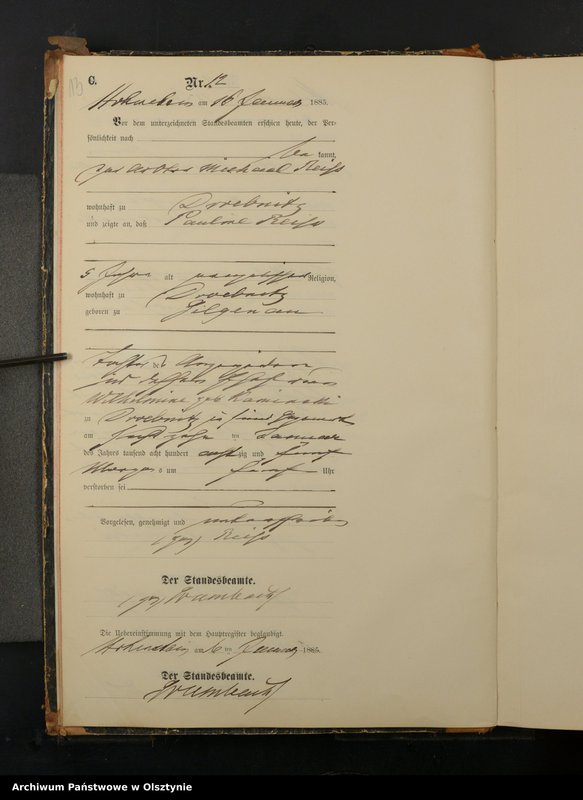 C.
Nr. 12
am 16 Januar 1885.
Vor dem unterzeichneten Standesbeamten erschien heute, der Per-
sönlichkeit nach
be kannt,
der Arbeiter Michael Reiss
wohnhaft zu Droebnitz
und zeigte an, daß Pauline Reiss
5 Jahre alt evangelischer Religion,
wohnhaft zu Droebnitz
geboren zu Gilgenau
Tochter des
Wilhelmine geb Kaminski
zu Droebnitz in seiner Gegenwart
am ten Januar
des Jahres tausend acht hundert achtzig und fünf
Morgens um fünf Uhr
verstorben sei
Vorgelesen, genehmigt und unterschrieben
(gez) Reiss
Der Standesbeamte.
(gez)
Die Uebereinstimmung mit dem Hauptregister beglaubigt.
am 16 ten Januar 1885.
Der Standesbeamte.
Archiwum Państwowe w Olsztynie